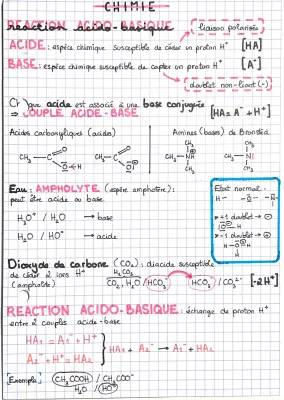 CHIMIE
RÉACTION ACIDO-BASIQUE
liaison polarisée
ACIDE : espèce chimique susceptible de céder un proton H⁺ [HA]
BASE : espèce chimique susceptible de capter un proton H⁺ [A⁻]
doublet non-liant (-)
Cᶜ° que acide est associé à une base conjuguée
⇒ COUPLE ACIDE-BASE [HA ⇌ A⁻ + H⁺]
Acides carboxyliques (acide) Amines (bases) de Brönsted
CH₃ — C O O — H CH₃ — C O O⁻
CH₃ CH₃ — NH CH₃ CH₃ CH₃ — N CH₃
Eau : AMPHOLYTE (espèce amphotère) :
peut être acide ou base
H₃O⁺ / H₂O → base
H₂O / HO⁻ → acide
État normal :
H— —O— —N—
+1 doublet → ⊖
-1 doublet → ⊕
Dioxyde de carbone (CO₂) : diacide susceptible
de céder 2 ions H⁺
(ampholyte)
H₂CO₃
CO₂, H₂O / HCO₃⁻ HCO₃⁻ / CO₃²⁻ [-2H⁺]
RÉACTION ACIDO-BASIQUE : échange de proton H⁺
entre 2 couples acide-base
HA₁ = A₁⁻ + H⁺
A₂⁻ + H⁺ = HA₂
HA₁ + A₂⁻ → A₁⁻ + HA₂
Exemple CH₃COOH / CH₃COO⁻
H₂O / HO⁻